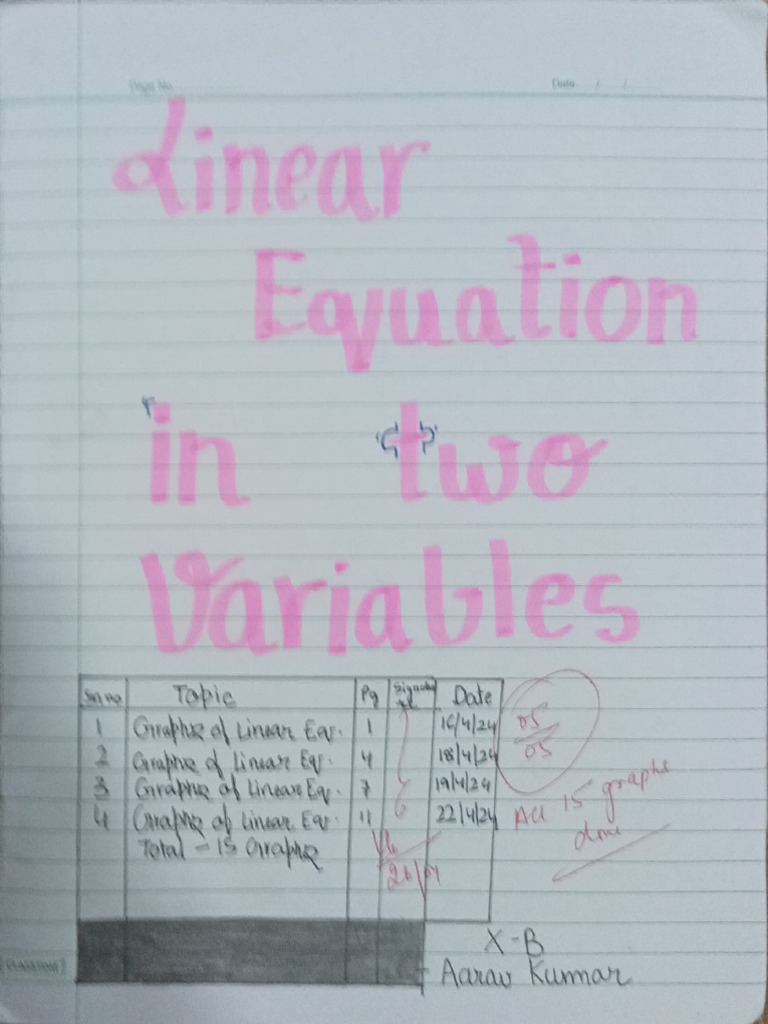 Page No.
Date / /
Linear
Equation
in two
Variables
Sn no Topic Pg Date
1 Graphs of Linear Eq. 1 16/4/24
2 Graphs of Linear Eq. 4 18/4/24
3 Graphs of Linear Eq. 7 19/4/24
4 Graphs of Linear Eq. 11 22/4/24
Total - 15 Graphs
05
05
All 15 graphs
done
X-B
Aarav Kumar